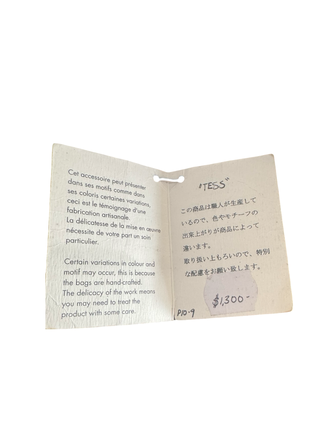 Cet accessoire peut présenter
dans ses motifs comme dans
ses coloris certaines variations,
ceci est le témoignage d'une
fabrication artisanale.
La délicatesse de la mise en œuvre
nécessite de votre part un soin
particulier.
Certain variations in colour and
motif may occur, this is because
the bags are hand-crafted.
The delicacy of the work means
you may need to treat the
product with some care.
"TESS"
この商品は職人が生産して
いるので、色やモチーフの
出来上がりが商品によって
違います。
取り扱い上もろいので、特別
な配慮をお願い致します。
$1,300-
P10-9